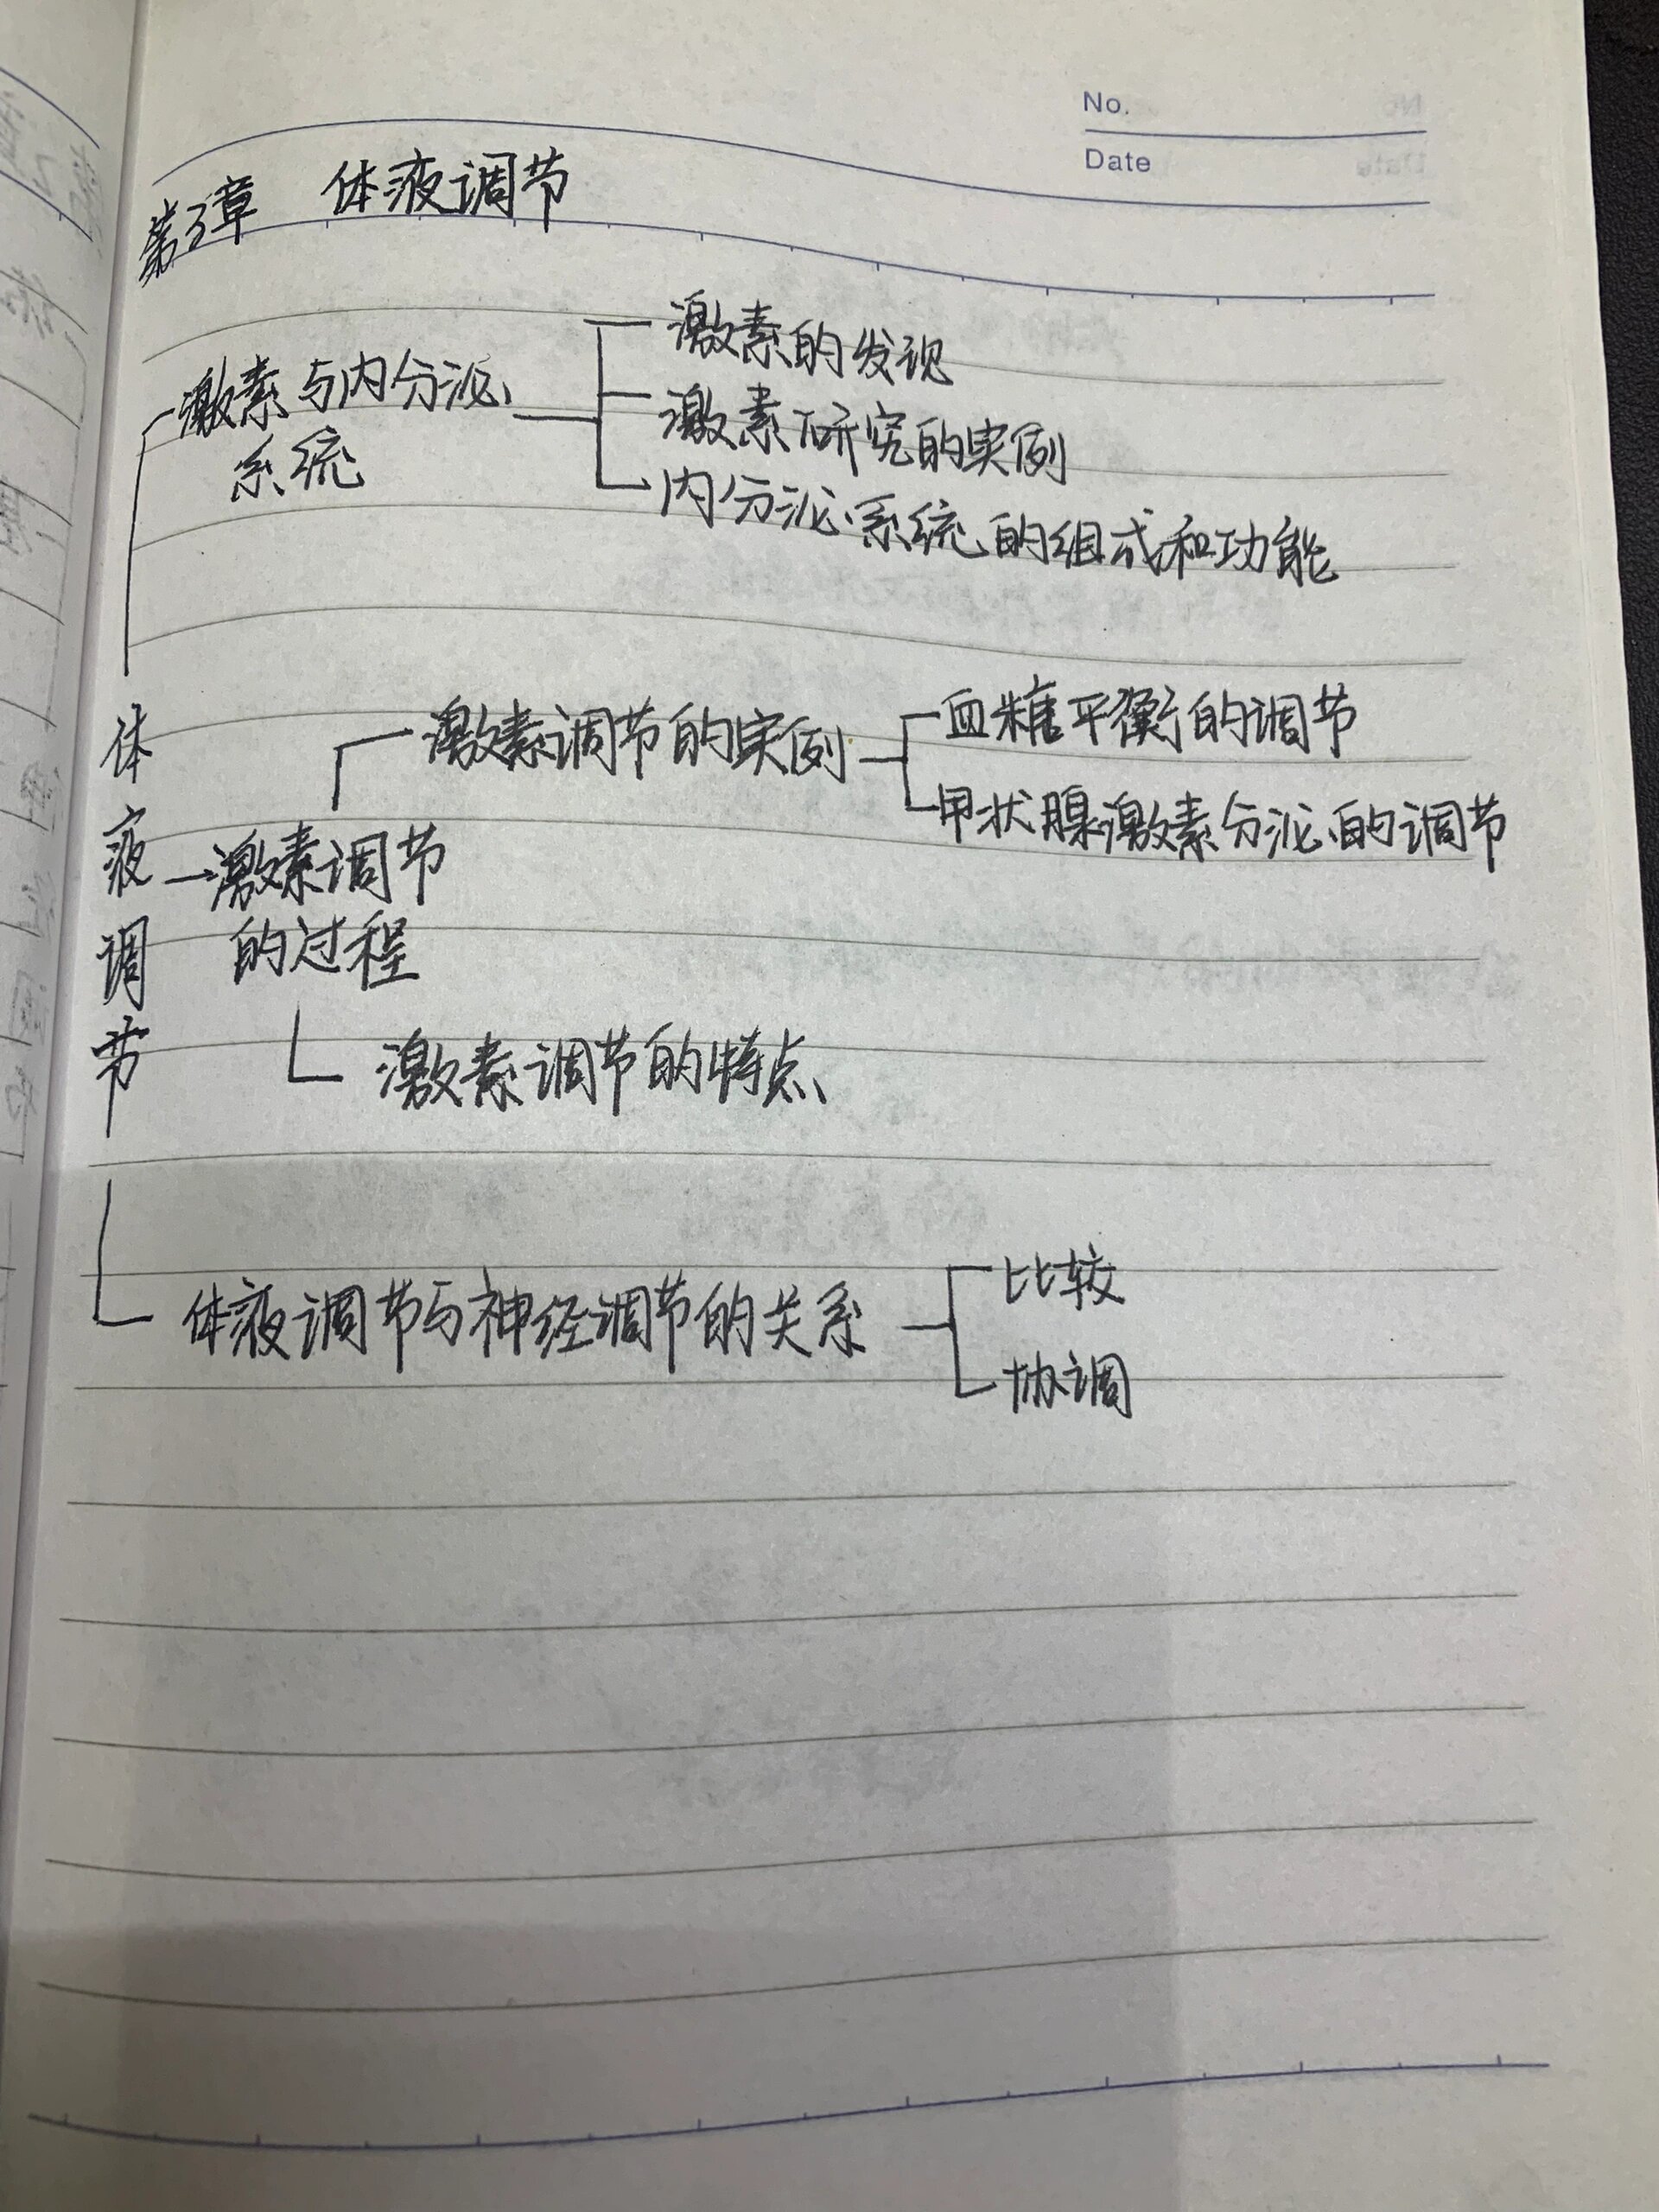 No.
Date
第3章 体液调节
激素与内分泌
系统
激素的发现
激素研究的实例
内分泌系统的组成和功能
体液调节
激素调节
的过程
激素调节的实例
血糖平衡的调节
甲状腺激素分泌的调节
激素调节的特点
体液调节与神经调节的关系
比较
协调